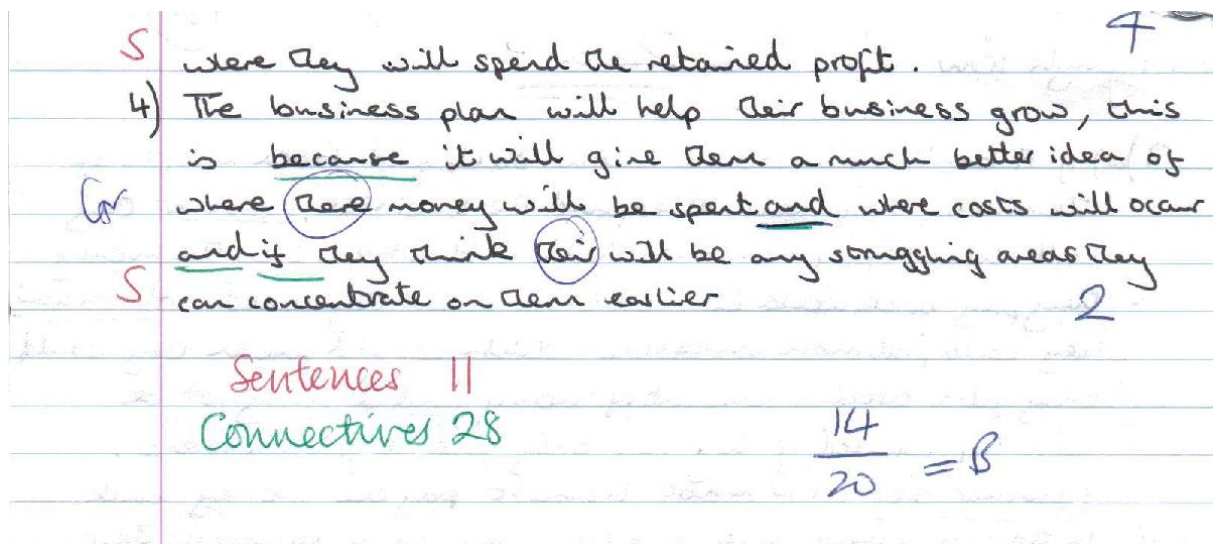 4
S where they will spend the retained profit.
4) The business plan will help their business grow, this
is because it will give them a much better idea of
Gr where there money will be spent and where costs will occur
and if they think their will be any struggling areas they
S can concentrate on them earlier
2
Sentences 11
Connectives 28
14
20 = B